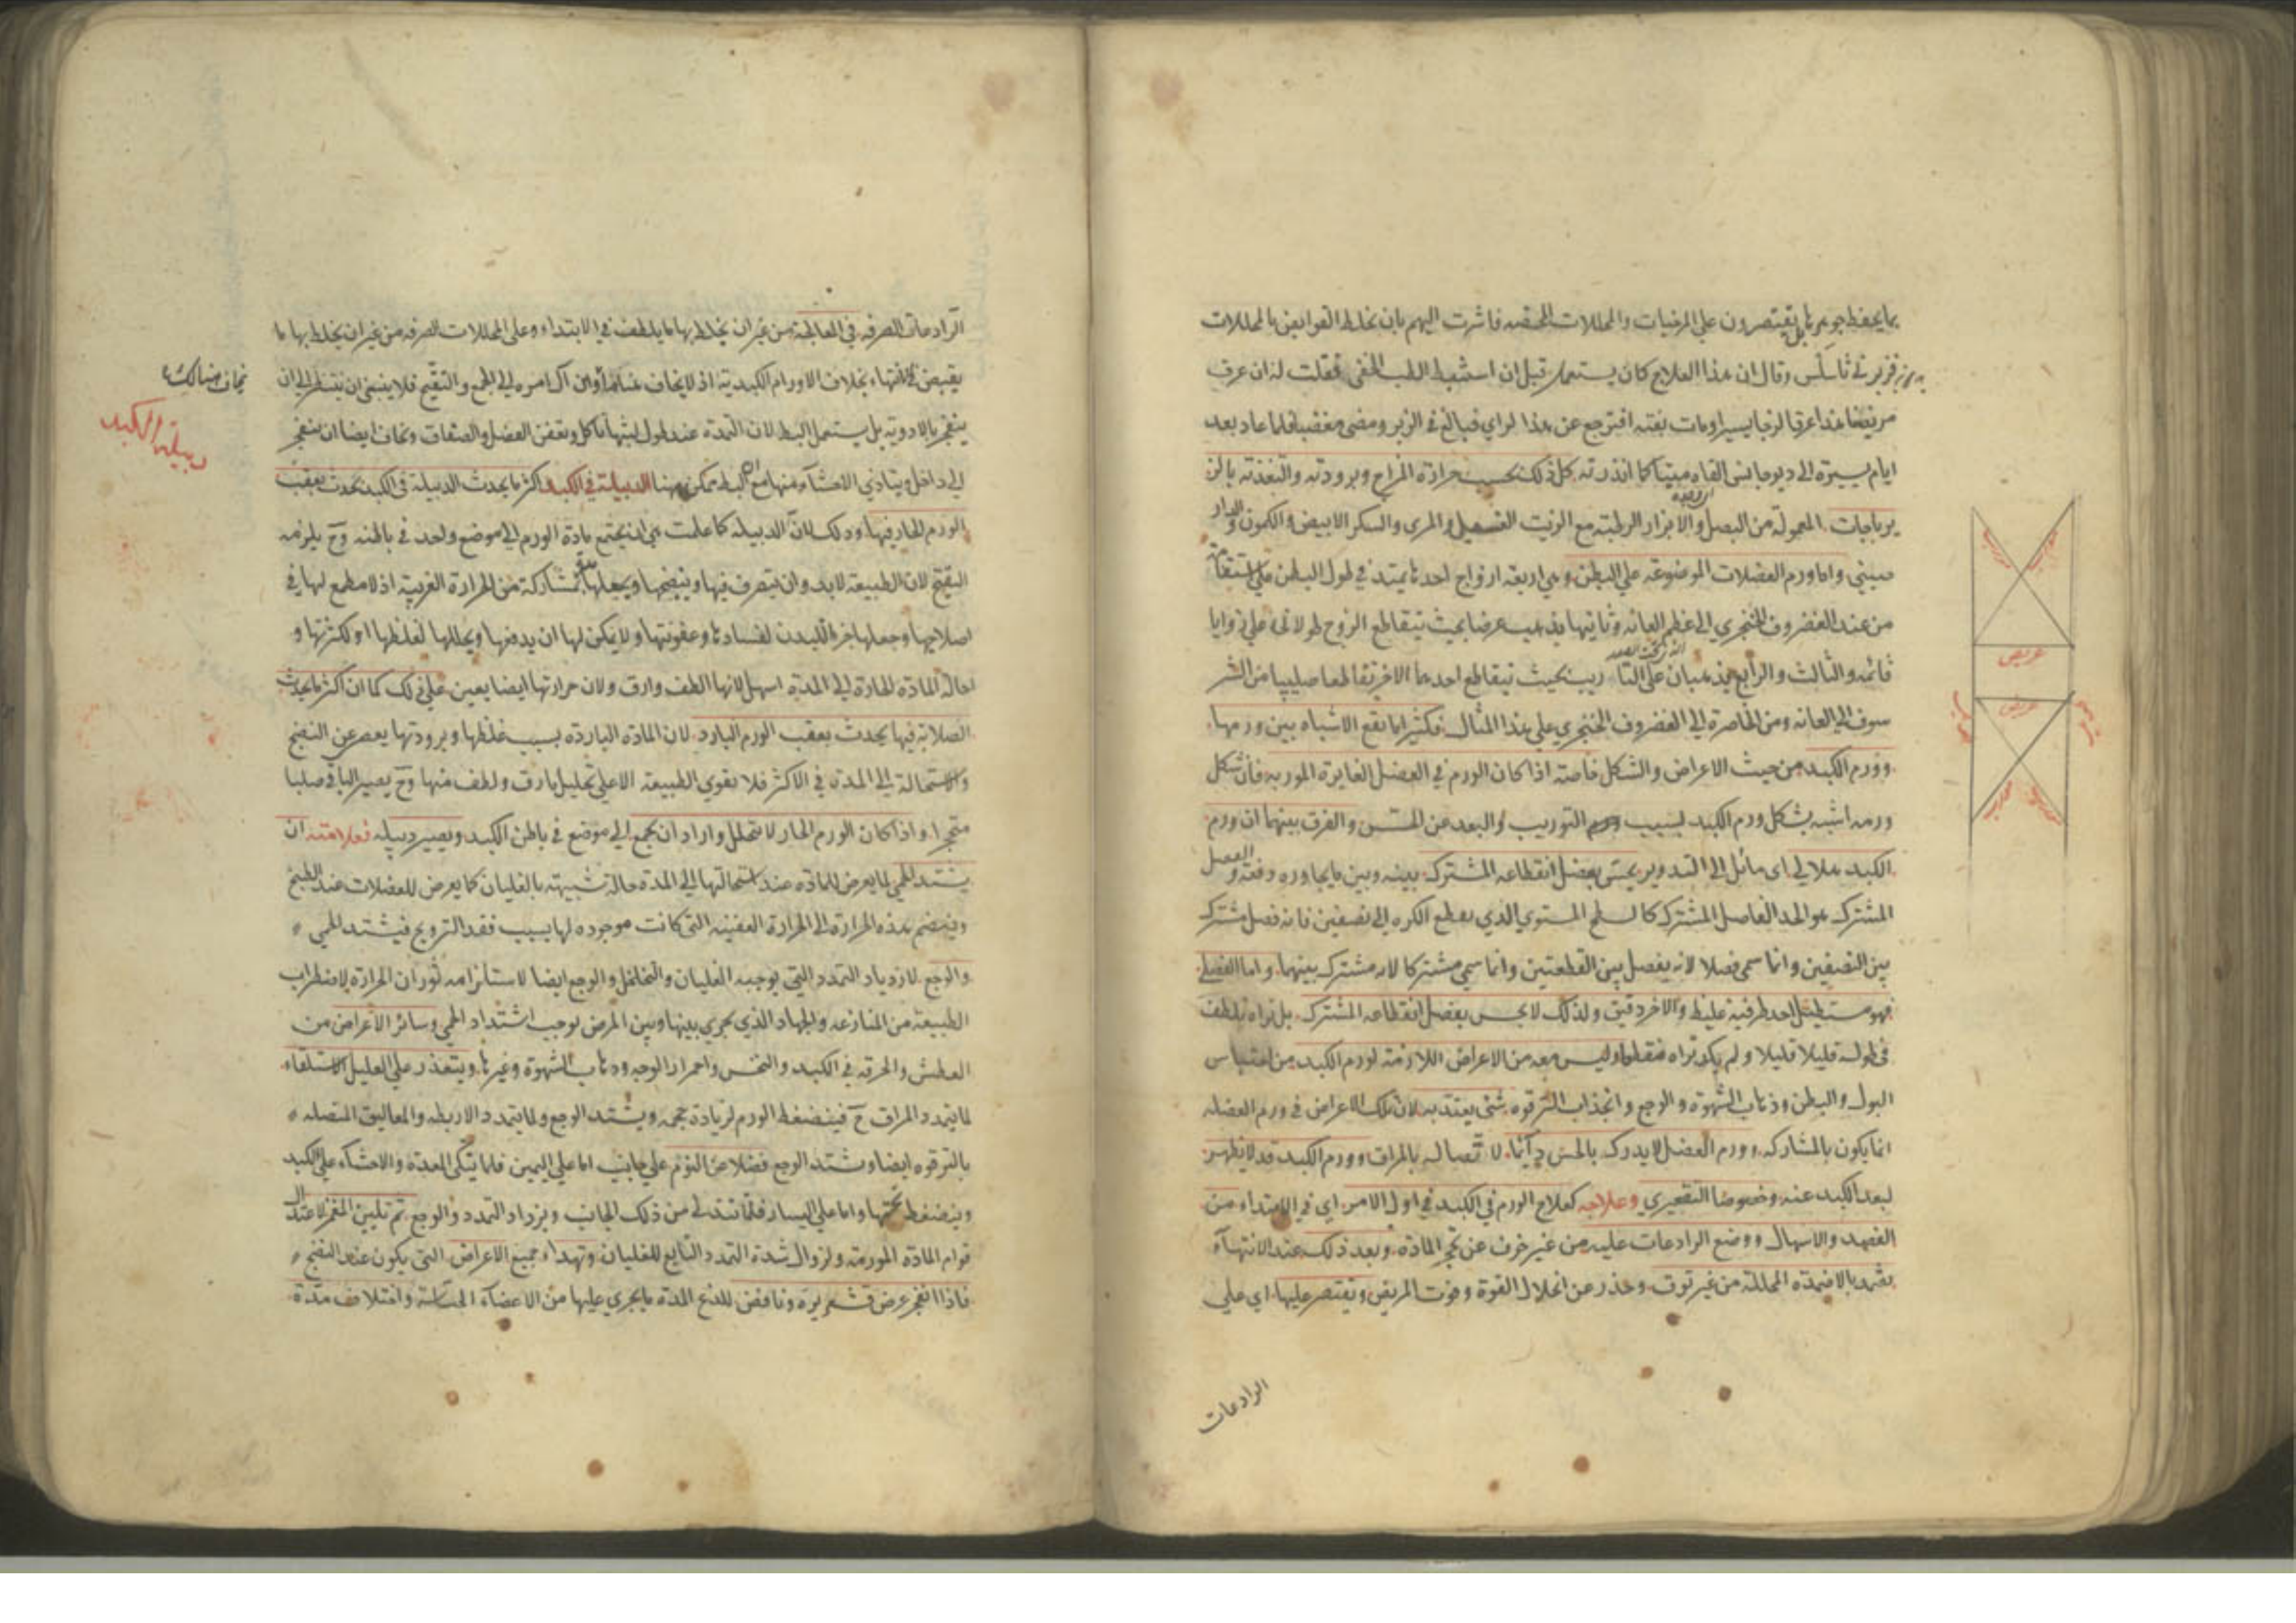 بما يحفظ جوهرها بل يقتصرون على المرخيات والمحللات المحضه فاشرت اليهم بان نخلط القوابض بالمحللات
وقال ان هذا العلاج كان يستعمل قبل ان استنبط الطب الخفى فقلت له ان عرف
مريضنا هذا عرقا لزجا يسيرا ومات بغته افترجع عن هذا الراى فبالغ فى الزبر ومضى مغضبا فلما عاد بعد
ايام يسيرة الى القاه ميتا كما انذرته كل ذلك بحسب حرارة المزاج وبرودته والتغذته بالمز
يرباجات المعمولة من البصل والابزار الرطبة مع الزيت الغسيل والمرى والسكر الابيض والكمون والدار
صينى واما ورم العضلات الموضوعه على البطن وهى اربعة ازواج احدها يمتد فى طول البطن على استقامة
من عند الغضروف الخنجرى الى عظم العانه وثانيها يذهب عرضا بحيث يتقاطع الزوج طولا على زوايا
قائمه والثالث والرابع يذهبان على التأريب بحيث يتقاطع احدهما الاخر تقاطعا صليبيا من الشر
سوف الى العانه ومن الخاصرة الى الغضروف الخنجرى على هذا المثال فكثيرا ما يقع الاشباه بين ورمها
وورم الكبد من حيث الاعراض والشكل خاصته اذا كان الورم فى العضل الغايرة المورىه فان شكل
ورمه اشبه بشكل ورم الكبد بسبب التوريب والبعد عن الحس والفرق بينهما ان ورم
الكبد هلالى اى مائل الى التدوير يحس بفصل انقطاعه المشترك بينه وبين ما يجاوره دفعة والفصل
المشترك هو الحد الفاصل المشترك كالسطح المستوى الذى يقطع الكره الى نصفين فانه فصل مشترك
بين النصفين وانما سمى فصلا لانه يفصل بين القطعتين وانما سمى مشتركا لانه مشترك بينهما واما العضلى
فهو مستطيل احد طرفيه غليظ والاخر دقيق ولذلك لا يحس بفصل انقطاعه المشترك بل تراه يلطف
فى طوله قليلا قليلا ولم يكد تراه منقطعا وليس معه من الاعراض اللازمة لورم الكبد من احتباس
البول والبطن وذهاب الشهوة والوجع وانجذاب الترقوه شئ يعتد به لان تلك الاعراض فى ورم العضله
انما يكون بالمشاركه وورم العضل لا يدرك بالحس دآئما لاتصاله بالمراق وورم الكبد قد لا يظهر
لبعد الكبد عنه وخصوصا التقعيرى وعلاجه كعلاج الورم فى الكبد فى اول الامر اى فى الابتداء من
الفصد والاسهال ووضع الرادعات عليه من غير خوف عن تحجر المادة وبعد ذلك عند الانتهآء
يضمد بالاضمدة المحللة من غير توق وحذر عن انحلال القوة وفوت المريض ويقتصر عليها اى على
الرادعات
عريض
عريض
الرادعات الصرفه فى المعالجة من غير ان يخلط بها ما يلطف فى الابتداء وعلى المحللات الصرفه من غير ان يخلط بها ما
يقبض فى الانتهاء بخلاف الاورام الكبدية اذ لا يخاف هنا وان آل امره الى الجمع والتقيح فلا ينبغى ان ينتظر الى ان
ينفجر بالادوية بل يستعمل البط لان المدة عند طول لبثها تأكل وتعفن العضل والصفاق ونخاف ايضا ان ينفجر
الى داخل ويتأذى الاحشآء منها مع ان البط ممكن ههنا الدبيلة فى الكبد اكثر ما يحدث الدبيلة فى الكبد يحدث بعقب
الورم الحار فيها وذلك لان الدبيله كما علمت هى ان يجتمع مادة الورم الى موضع واحد فى باطنه وح يلزمه
التقيح لان الطبيعة لا بد وان يتصرف فيها وينضجها ويجعلها بمشاركة من الحرارة الغريبة اذ لا مطمع لها فى
اصلاحها وجعلها جزءا للبدن لفسادها وعفونتها ولا يمكن لها ان يدفعها ويحللها لغلظها او لكثرتها و
احالة المادة الحارة الى المدة اسهل لانها الطف وارق ولان حرارتها ايضا يعين على ذلك كما ان اكثر ما يحدث
الصلابة فيها يحدث بعقب الورم البارد لان المادة الباردة بسبب غلظها وبرودتها يعصى عن النضج
والاستحالة الى المدة فى الاكثر فلا يقوى الطبيعة الا على تحليل ما رق ولطف منها وح يصير الباقى صلبا
متحجرا واذا كان الورم الحار لا يتحلل واراد ان يجمع الى موضع فى باطن الكبد ويصير دبيله فعلامته ان
يشتد الحمى لما يعرض للمادة عند استحالتها الى المدة حالة شبيهة بالغليان كما يعرض للعضلات عند الطبخ
وينضم هذه الحرارة الى الحرارة العفنيه التى كانت موجوده لها بسبب فقد الترويح فيشتد الحمى
والوجع لازدياد التمدد التى يوجبه الغليان والتخلخل والوجع ايضا لاستلزامه ثوران الحرارة لاضطراب
الطبيعة من المنازعه والجهاد الذى يجرى بينها وبين المرض يوجب اشتداد الحمى وسائر الاعراض من
العطش والحرقه فى الكبد والنخس واحمرار الوجه وذهاب الشهوة وغيرها ويتعذر على العليل الاستلقاء
لما يتمدد المراق ح فينضغط الورم لزيادة حجمه ويشتد الوجع ولما يتمدد الاربطه والمعاليق المتصله
بالترقوه ايضا ويشتد الوجع فضلا عن النوم على جانب اما على اليمين فلما يتكى المعدة والاحشآء على الكبد
وينضغط تحتها واما على اليسار فلما تتدلى من ذلك الجانب ويزداد التمدد والوجع ثم تليين المغمز لاعتدال
قوام المادة المورمة ولزوال شدة التمدد التابع للغليان وتهداء جميع الاعراض التى يكون عند النضج
فاذا انفجر عرض قشعريرة ونافض للذع المدة ما يجرى عليها من الاعضاء الحساسة واختلاف مدة
يخاف هنالك
دبيلة الكبد